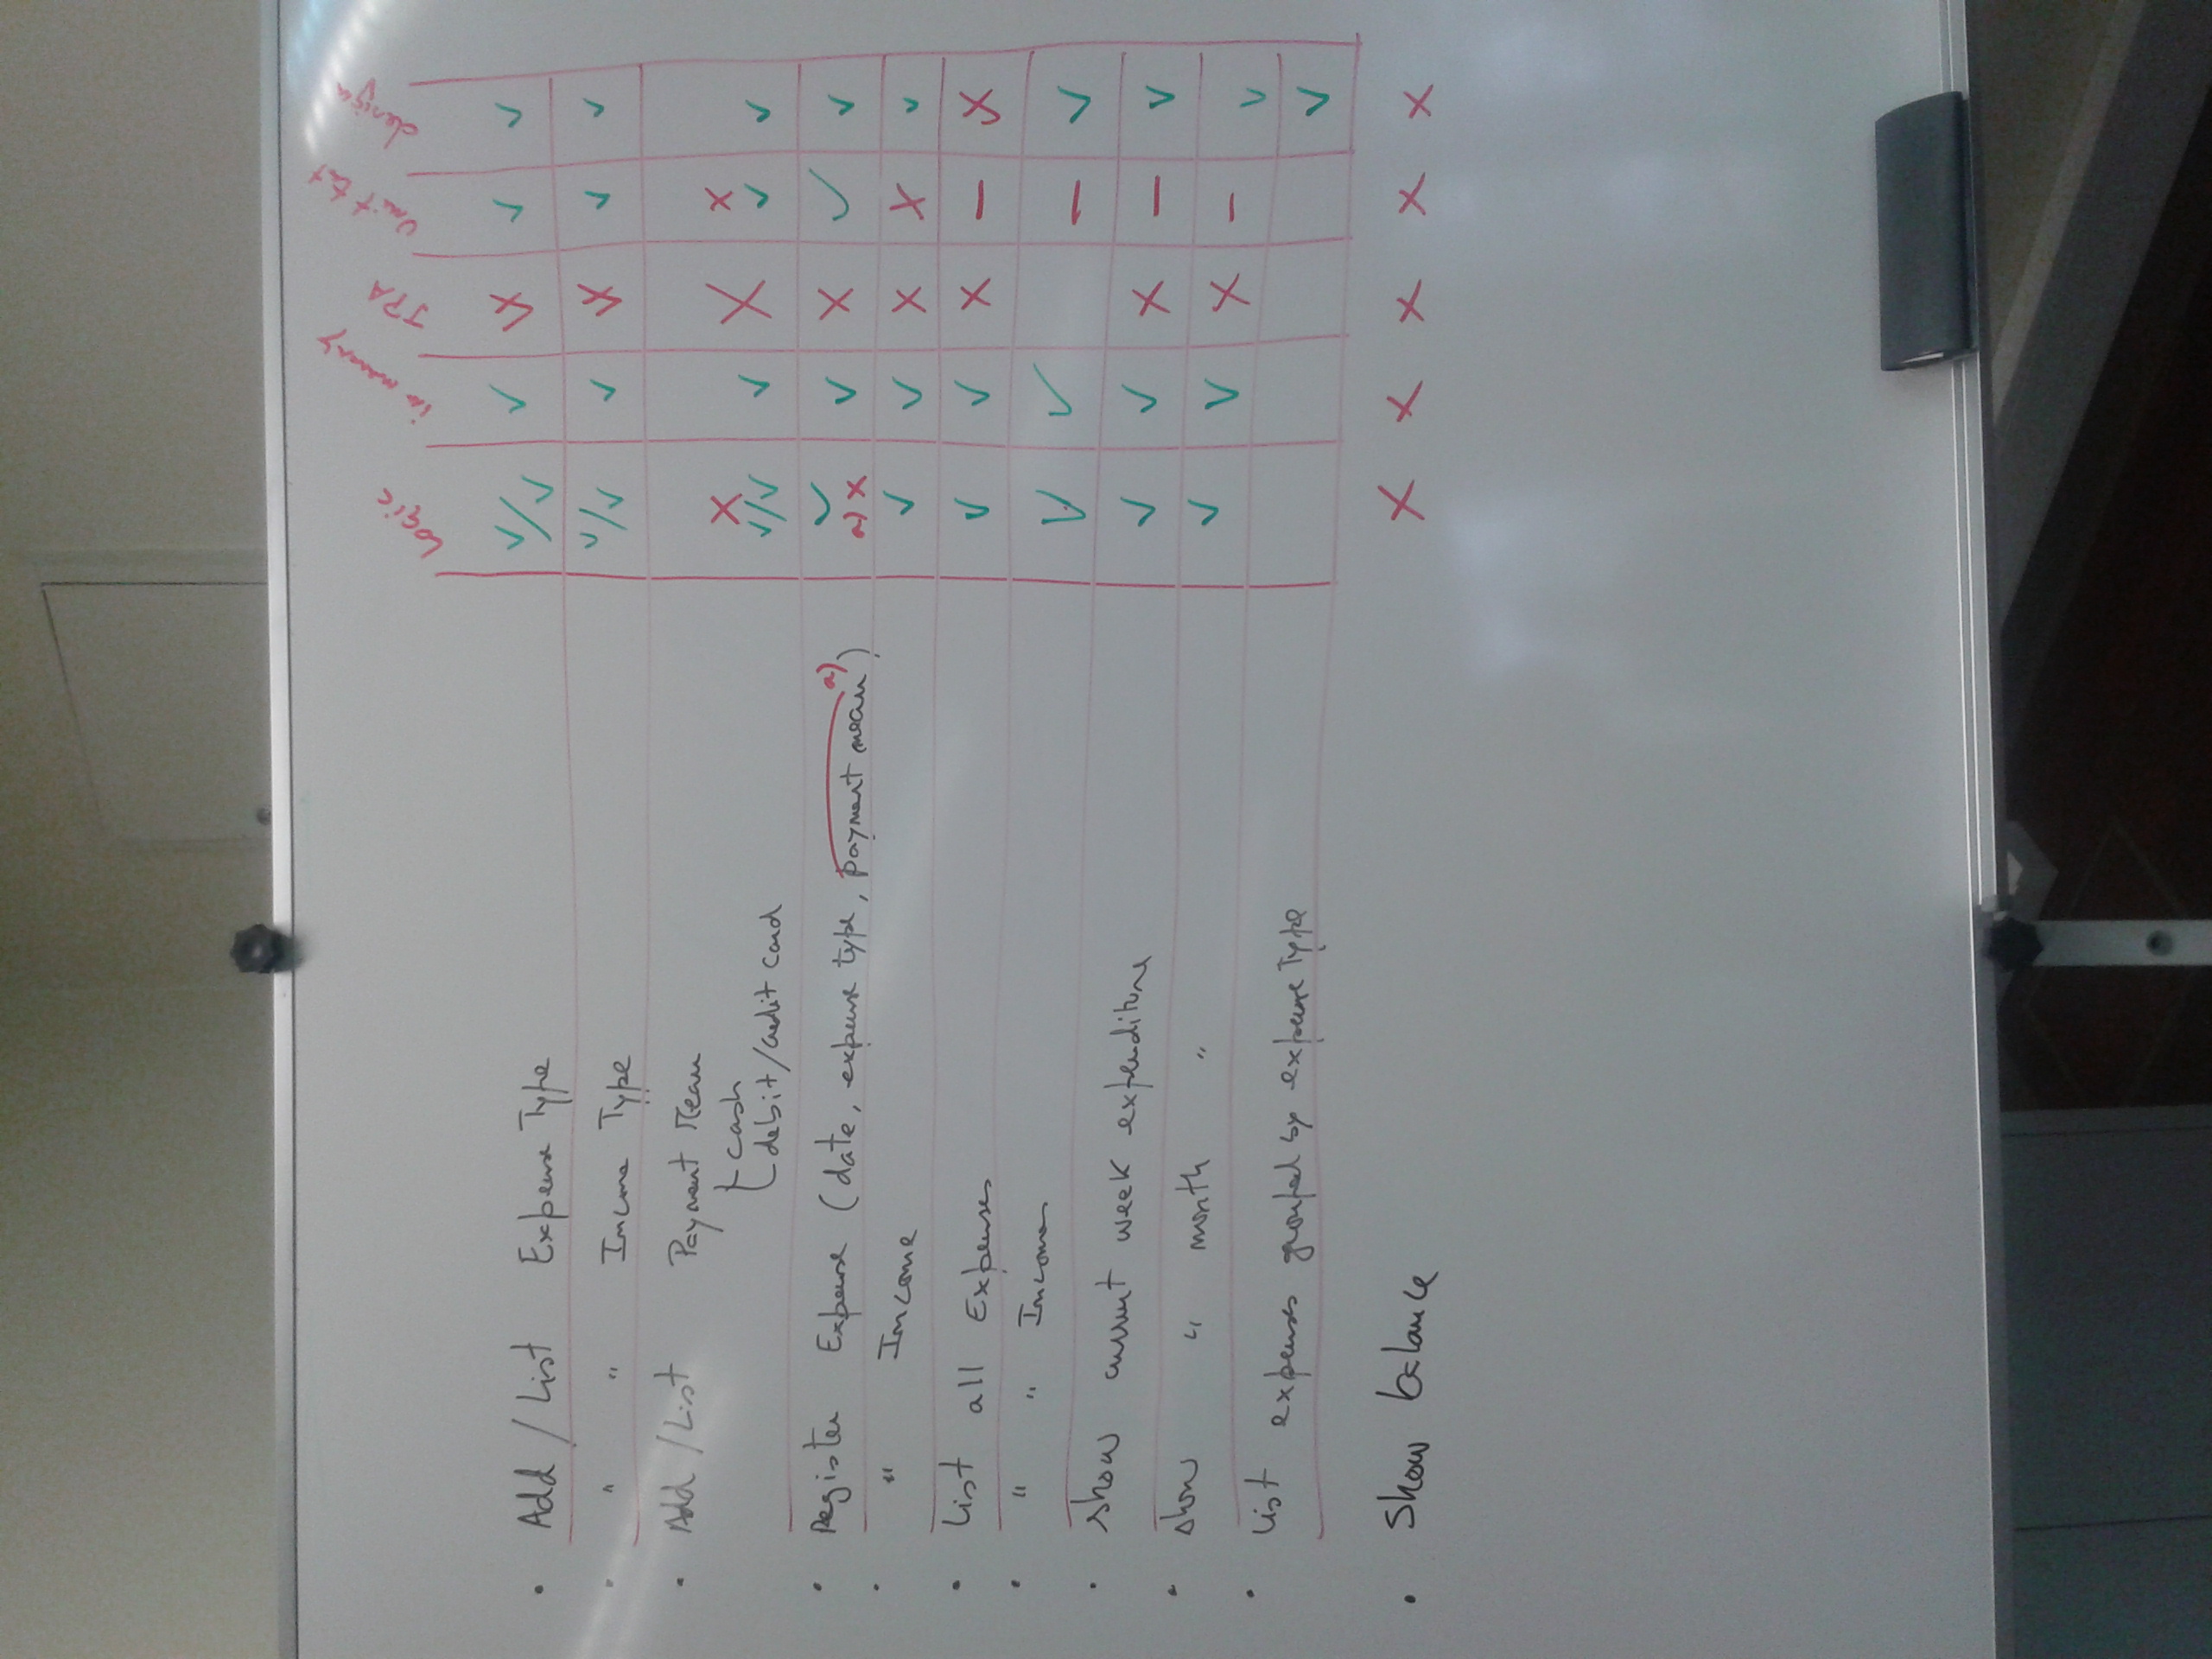 Logic in memory JPA Unit test design
• Add / List Expense Type ✓/✓ ✓ X ✓ ✓
• " " Income Type ✓/✓ ✓ X ✓ ✓
• Add / List Payment Mean
cash X X X
debit/credit card ✓/✓ ✓ ✓ ✓
• Register Expense (date, expense type, payment mean a)) ✓ a) X ✓ X ✓ ✓
• " Income ✓ ✓ X X ✓
• List all Expenses ✓ ✓ X - X
• " " Incomes ✓ ✓ - ✓
• Show current week expenditure ✓ ✓ X - ✓
• show " month " ✓ ✓ X - ✓
• List expenses grouped by expense Type ✓
• Show balance X X X X X